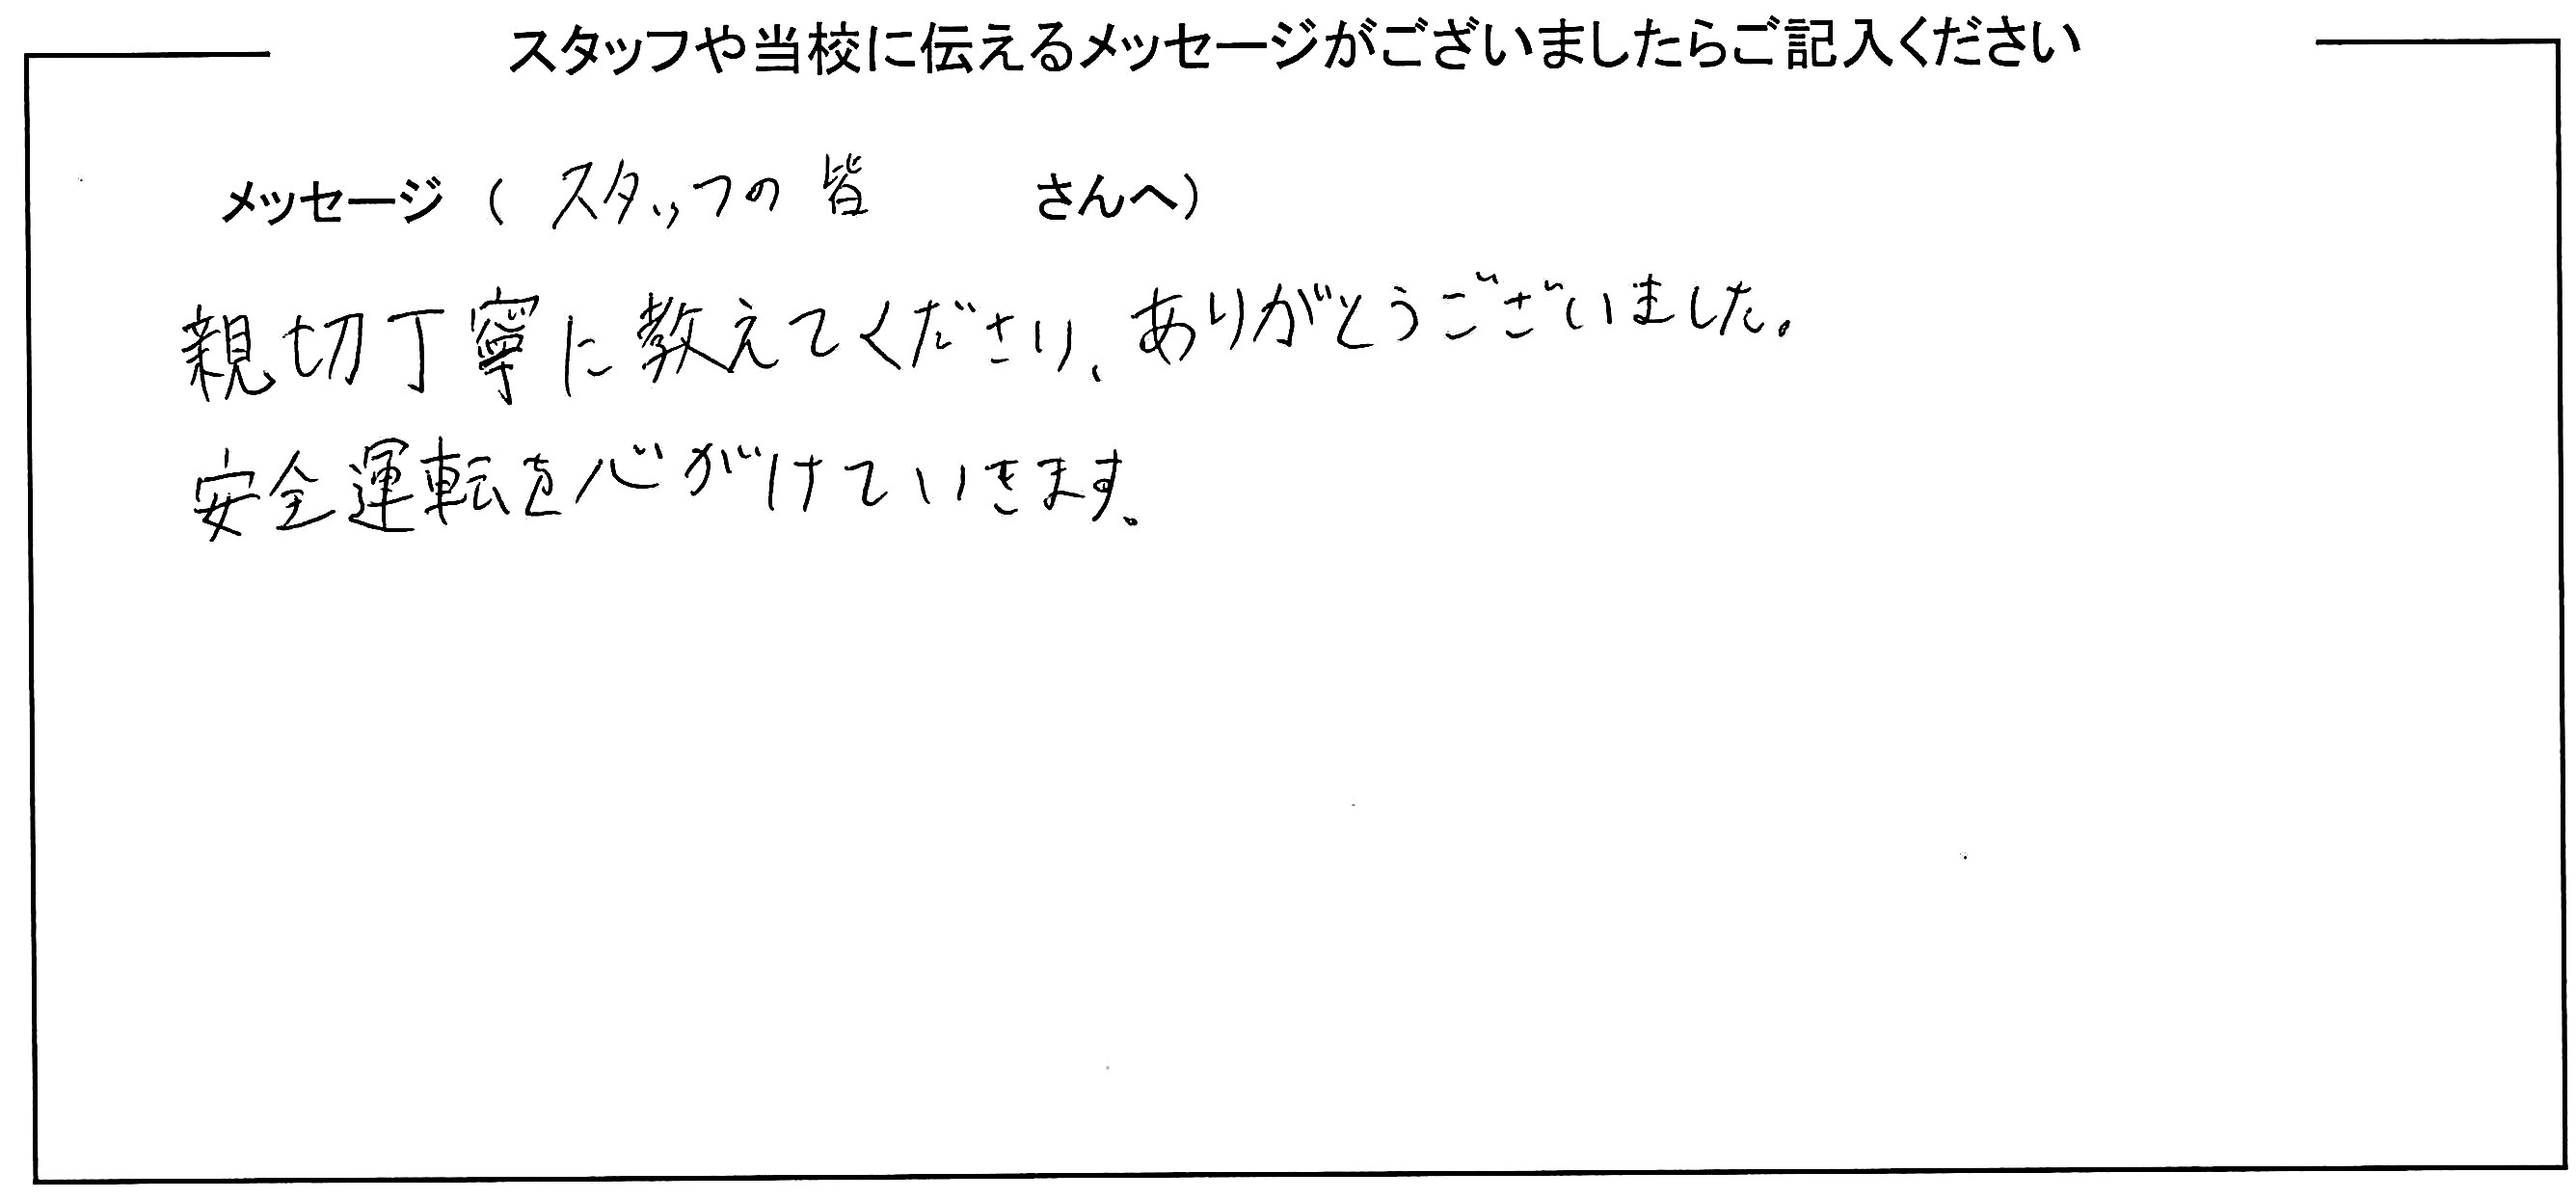 スタッフや当校に伝えるメッセージがございましたらご記入ください
メッセージ（ スタッフの皆 さんへ）
親切丁寧に教えてくださり、ありがとうございました。
安全運転を心がけていきます。